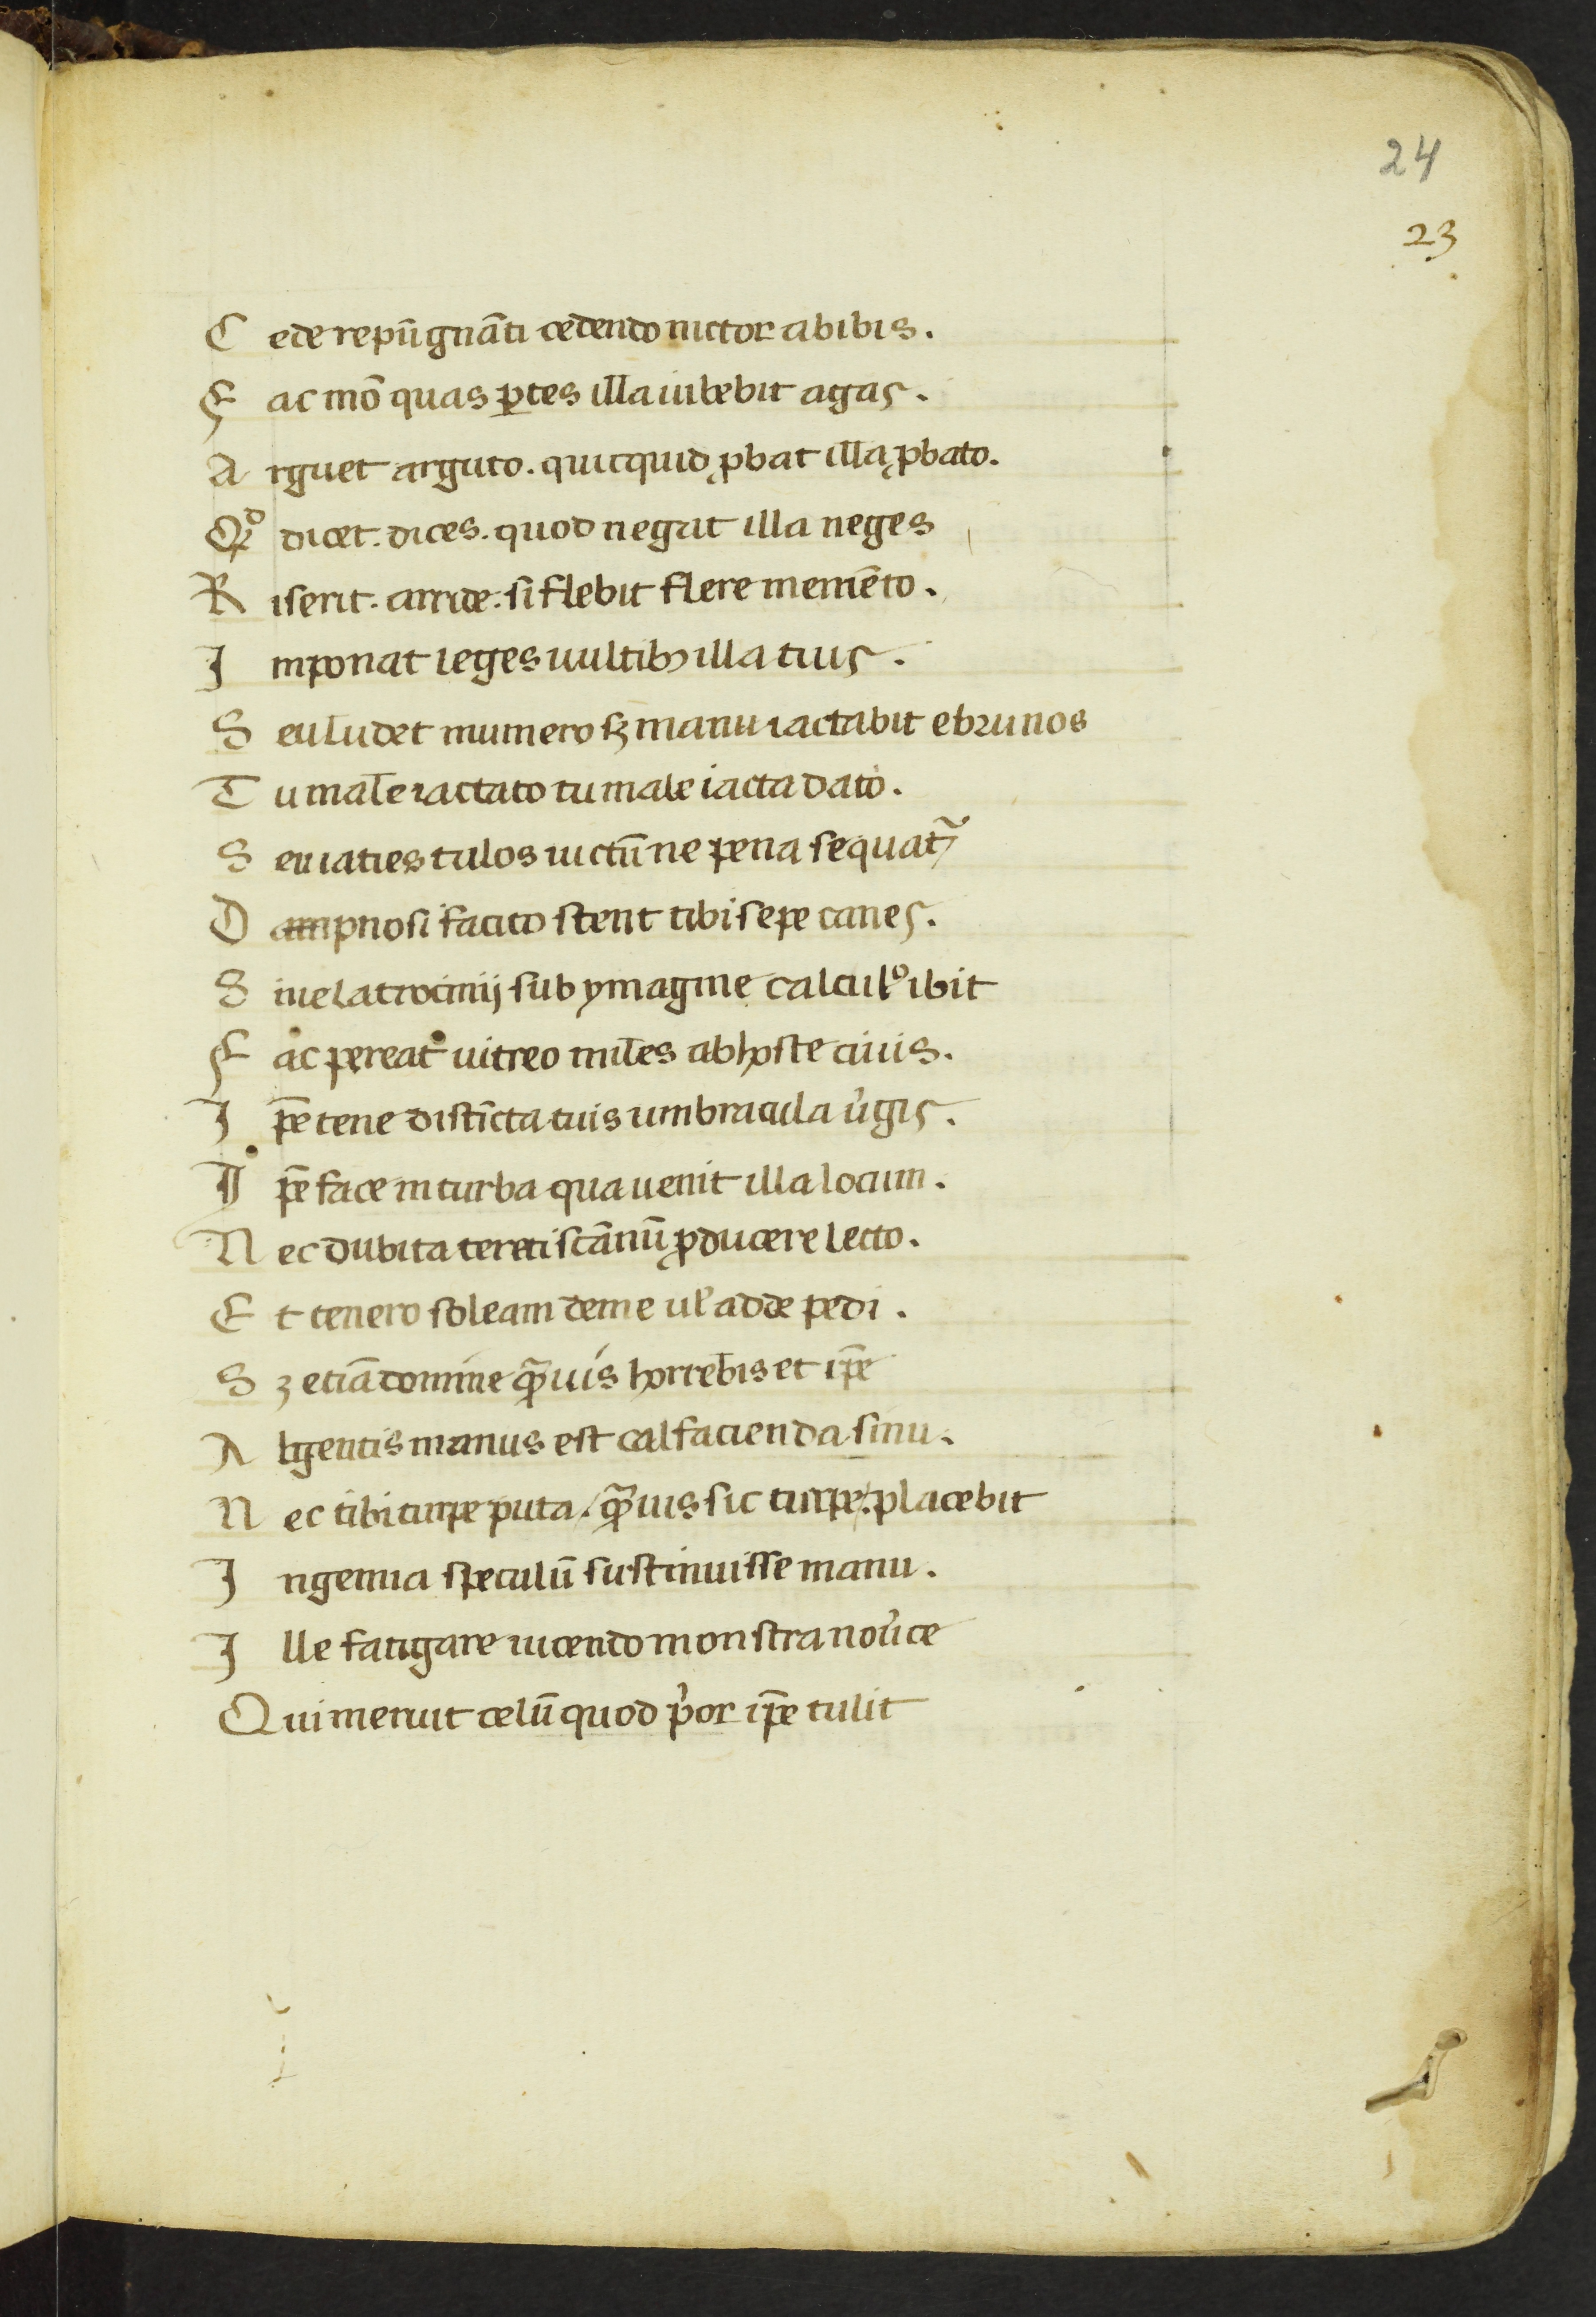 24
23
C ede repūgnāti cedendo uictor abibis.
F ac mō quas ꝑtes illa iubebit agas.
A rguet arguto. quicquid ꝓbat illa ꝓbato.
Qᵈ dicet. dices. quod negat illa neges
R iserit. arride. si flebit flere memēto.
I mponat leges uultibꝫ illa tuis.
S eu ludet numerosqꝫ manu iactabit eburnos
T u male iactato tu male iacta dato.
S eu iacies talos uictū ne pena sequat᷑
D ampnosi facito stent tibi sepe canes.
S iue latrocinij sub ymagine calculꝰ ibit
F ac pereat uitreo miles ab hoste tuus.
I p̄e tene distīcta tuis umbracula u͛gis.
I p̄e face in turba qua uenit illa locum.
N ec dubita tereti scānū ꝓducere lecto.
E t tenero soleam deme ul̓ adde pedi.
S ꝫ etiā domine qᷓuis horrebis et ip̄e
A lgentis manus est calfacienda sinu.
N ec tibi turpe puta / qᷓuis sic turpe. placebit
I ngenua speculū sustinuisse manu.
I lle fatigare iucendo monstra nou͛ce
Qui meruit celū quod p͛or ip̄e tulit